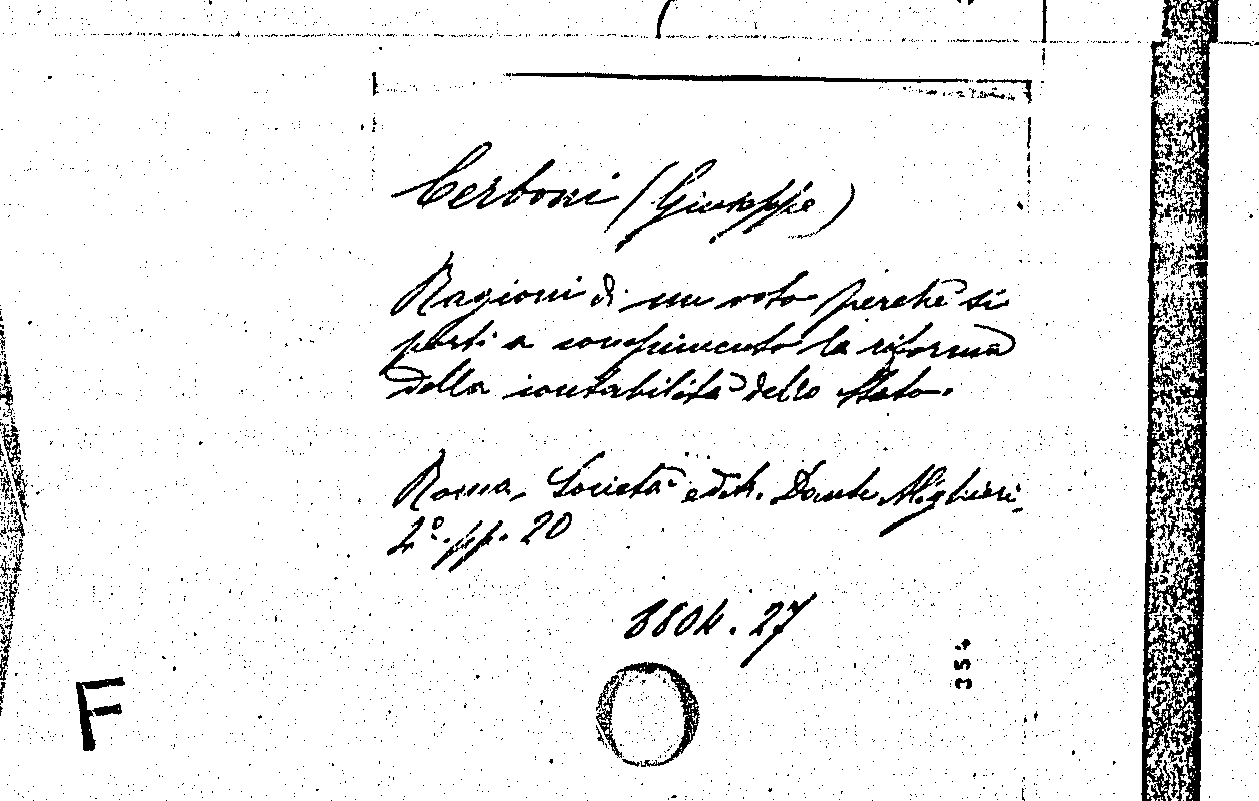 Cerboni (Giuseppe)
Ragioni di un voto perchè si
porti a compimento la riforma
della contabilità dello Stato.
Roma, Società edit. Dante Alighieri,
2º. pp. 20
8804.27
354
F